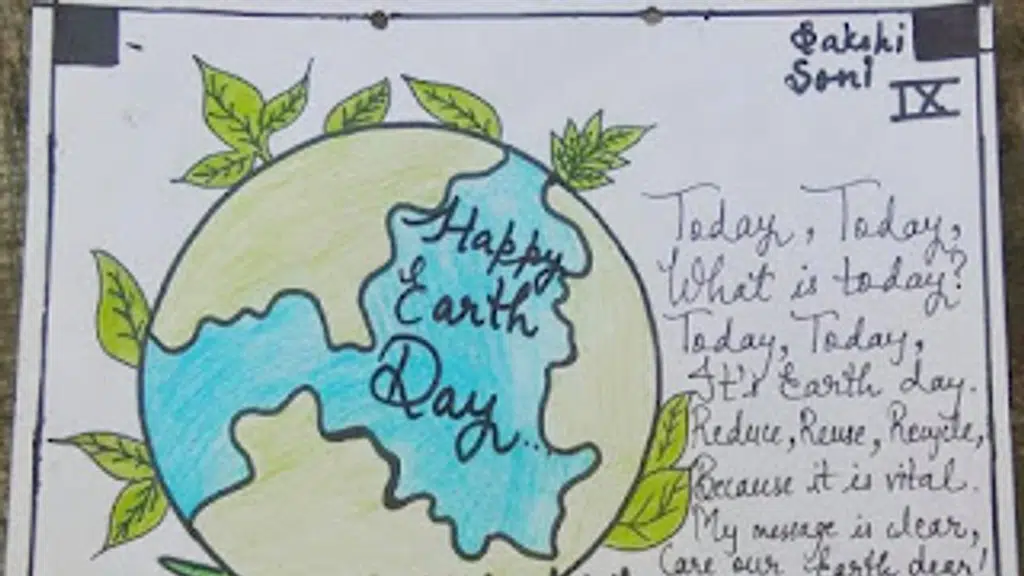 Sakshi
Soni
IX
Happy
Earth
Day...
Today, Today,
What is today?
Today, Today,
It's Earth day.
Reduce, Reuse, Recycle,
Because it is vital.
My message is clear,
Care our Earth dear!